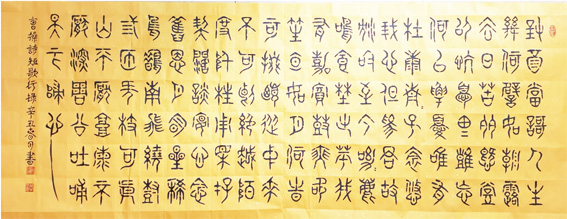 對酒當歌人生
幾何譬如朝露
去日苦多慨當
以慷憂思難忘
何以解憂唯有
杜康青子衿悠
我心但為君故
沉吟至今呦鹿
鳴食野之苹我
有嘉賓鼓瑟吹
笙明如月何時
可掇憂從中來
不可斷絕越陌
度阡枉用相存
契闊談讌心念
舊恩月明星稀
烏鵲南飛繞樹
三匝何枝可依
山不厭高海不
厭深周公吐哺
天下歸心
曹操詩短歌行 辛丑 書